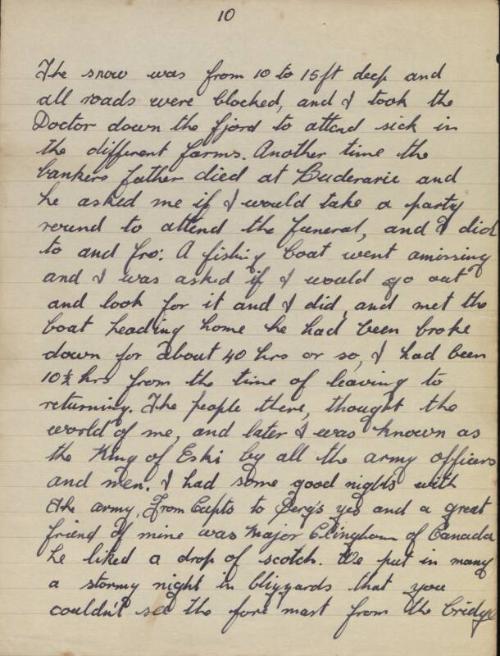 10
The snow was from 10 to 15ft deep and
all roads were blocked, and I took the
Doctor down the fjord to attend sick in
the different farms. Another time the
bankers father died at Buderarie and
he asked me if I would take a party
round to attend the funeral, and I did
to and fro. A fishing boat went amissing
and I was asked if I would go out
and look for it and I did, and met the
boat heading home he had been broke
down for about 40 hrs or so, I had been
10½ hrs from the time of leaving to
returning. The people there, thought the
world of me, and later I was known as
the King of Eski by all the army officers
and men. I had some good nights with
the army, From Capts to Serg's yes and a great
friend of mine was Major of Canada
he liked a drop of scotch. We put in many
a stormy night in blizzards that you
couldn't see the fore mast from the bridge